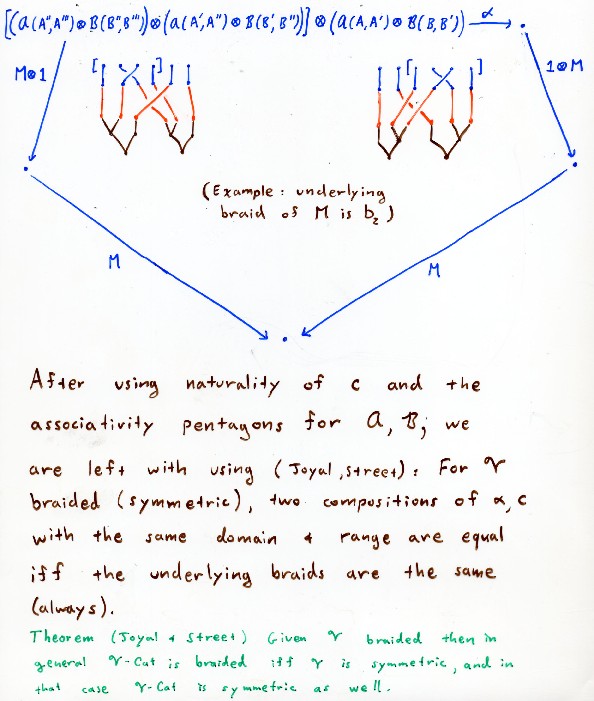 [(𝒜(A'',A''')⊗ℬ(B'',B'''))⊗(𝒜(A',A'')⊗ℬ(B',B''))]⊗(𝒜(A,A')⊗ℬ(B,B')) α
M⊗1 1⊗M
[ ] [ ]
(Example: underlying
braid of M is b₂)
M M
After using naturality of c and the
associativity pentagons for 𝒜, ℬ; we
are left with using (Joyal, Street): For 𝒱
braided (symmetric), two compositions of α, c
with the same domain & range are equal
iff the underlying braids are the same
(always).
Theorem (Joyal & Street) Given 𝒱 braided then in
general 𝒱-Cat is braided iff 𝒱 is symmetric, and in
that case 𝒱-Cat is symmetric as well.